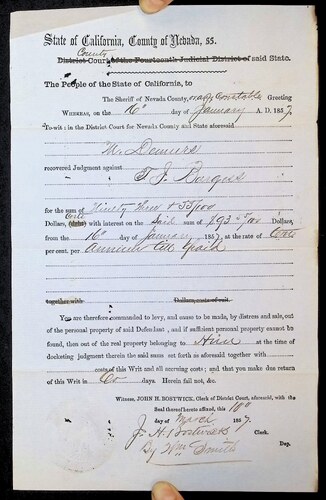 State of California, County of Nevada, ss.
County
District Court of the Fourteenth Judicial District of said State.
The People of the State of California, to
The Sheriff of Nevada County, or any Constable Greeting
WHEREAS, on the 16th day of January A. D. 1857
To-wit: in the District Court for Nevada County and State aforesaid
M. Demers
recovered Judgment against
T J Burgess
for the sum of Ninety three + 55/100
Dollars, with interest on the said sum of $93 Dollars,
from the 16th day of January 1857, at the rate of
per cent. per Annum till paid
together with Dollars, costs of suit.
You are therefore commanded to levy, and cause to be made, by distress and sale, out
of the personal property of said Defendant, and if sufficient personal property cannot be
found, then out of the real property belonging to Him at the time of
docketing judgment therein the said sums set forth as aforesaid together with
costs of this Writ and all accruing costs; and that you make due return
of this Writ in days. Herein fail not, &c.
Witness, JOHN H. BOSTWICK, Clerk of District Court, aforesaid, with the
Seal thereof hereto affixed, this 10th
day of March 1857
J. H. Bostwick Clerk.
By Wm Smith Dep.